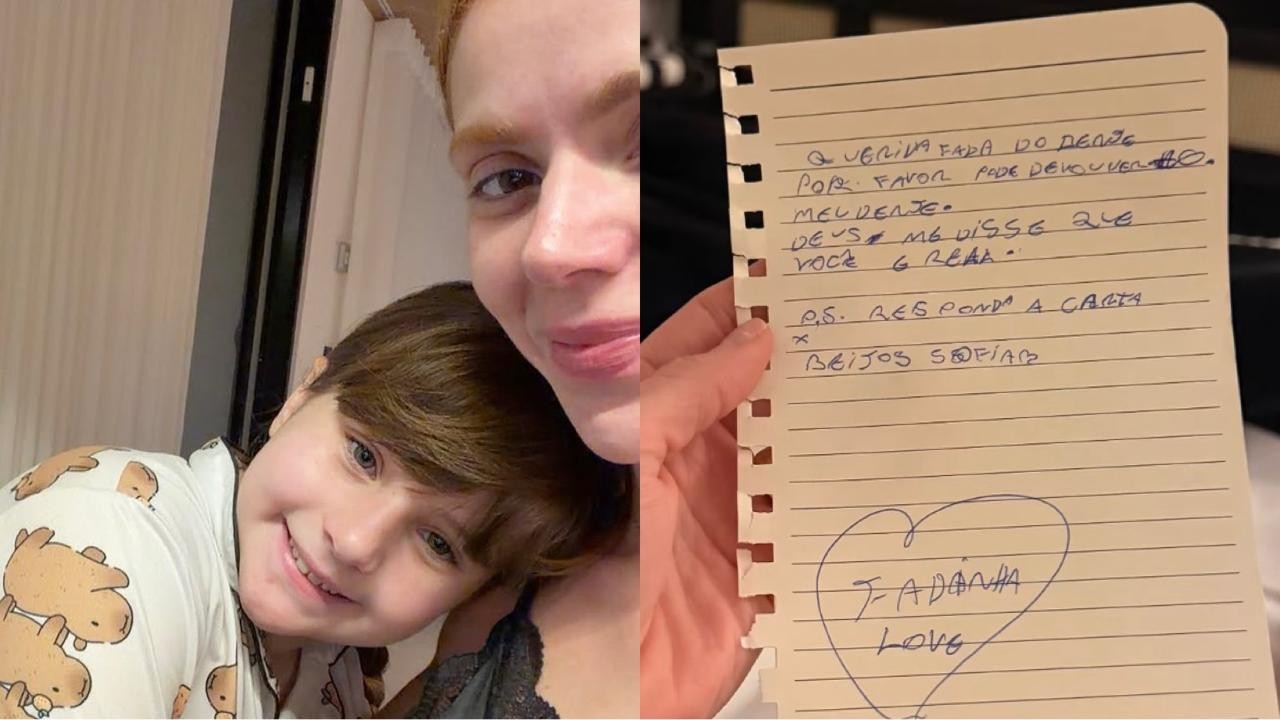 QUERIDA FADA DO DENTE
POR. FAVOR PODE DEVOUVER O.
MEU DENTE.
DEUS ME DISSE QUE
VOCÊ É REAL.
P,S. RESPONDA A CARTA
X
BEIJOS SOFIA
FADINHA
LOVE